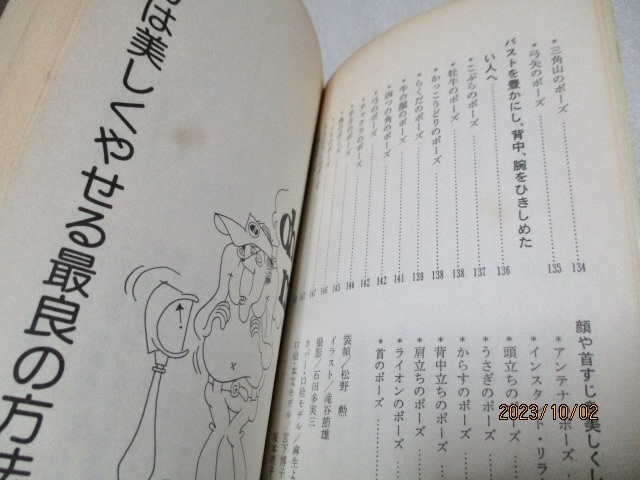 は美しくやせる最良の方
*三角山のポーズ 134
*弓矢のポーズ 135
バストを豊かにし、背中、腕をひきしめた
い人へ 136
*こぶらのポーズ 137
*牡牛のポーズ 138
*かっこうどりのポーズ 138
*らくだのポーズ 139
*牛の顔のポーズ 141
*四つの角のポーズ 142
*弓のポーズ 142
顔や首すじを美しくし
*アンテナのポーズ
*インスタント・リラ
*頭立ちのポーズ
*うさぎのポーズ
*からすのポーズ
*背中立ちのポーズ
*肩立ちのポーズ
*ライオンのポーズ
*首のポーズ
装幀／松野 勲
イラスト／滝谷節雄
撮影／石田多実三
カバー・口絵モデル／麻生よ
口絵・本文モデル／宮下博子
2023/10/02